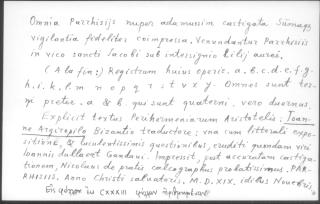 Omnia Parrhisijs nuper adamusim castigata Sūmaq;
vigilantia fideliter coimpressa. Venundantur Parrhisiis
in vico sancti Jacobi sub intersignio Lilij aurei.
(A la fin:) Registrum huius operis. a. b. c. d. e. f. g.
h. i. k. l. m n o p q r s t v x y. Omnes sunt ter-
ni preter. a & b. qui sunt quaterni. vero duernus.
Explicit textus Perihermeniarum Aristotelis: Joan-
ne Argiropilo Bizantio traductore; vna cum litterali expo-
sitione, & luculentissimis questionibus, eruditi quondam viri
Joannis dullaert Gandavi. Impressit, post accuratam castiga-
tionem, Nicolaus de pratis calcographus probatissimus. PAR-
RHISIIS, Anno Christi salvatoris, M.D.XIX, idibus Nouēbris.
CXXXIII